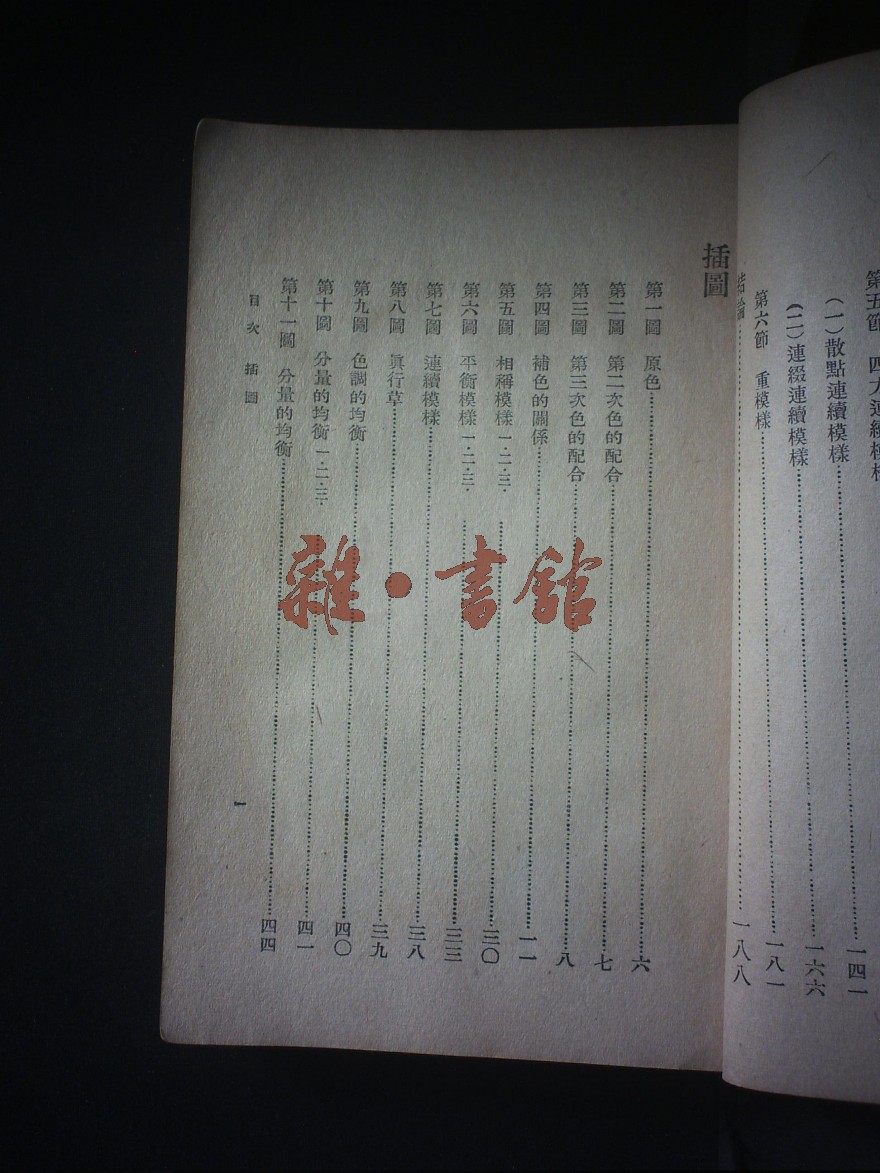 第五節　四方連續模樣
(一)散點連續模樣……一四一
(二)連綴連續模樣……一六六
第六節　重模樣……一八一
結論……一八八
插圖
第一圖　原色……六
第二圖　第二次色的配合……七
第三圖　第三次色的配合……八
第四圖　補色的關係……一一
第五圖　相稱模樣一·二·三·……三〇
第六圖　平衡模樣一·二·三·……三三
第七圖　連續模樣……三八
第八圖　眞行草……三九
第九圖　色調的均衡……四〇
第十圖　分量的均衡一·二·三·……四一
第十一圖　分量的均衡……四四
目次　插圖
一
雜·書館